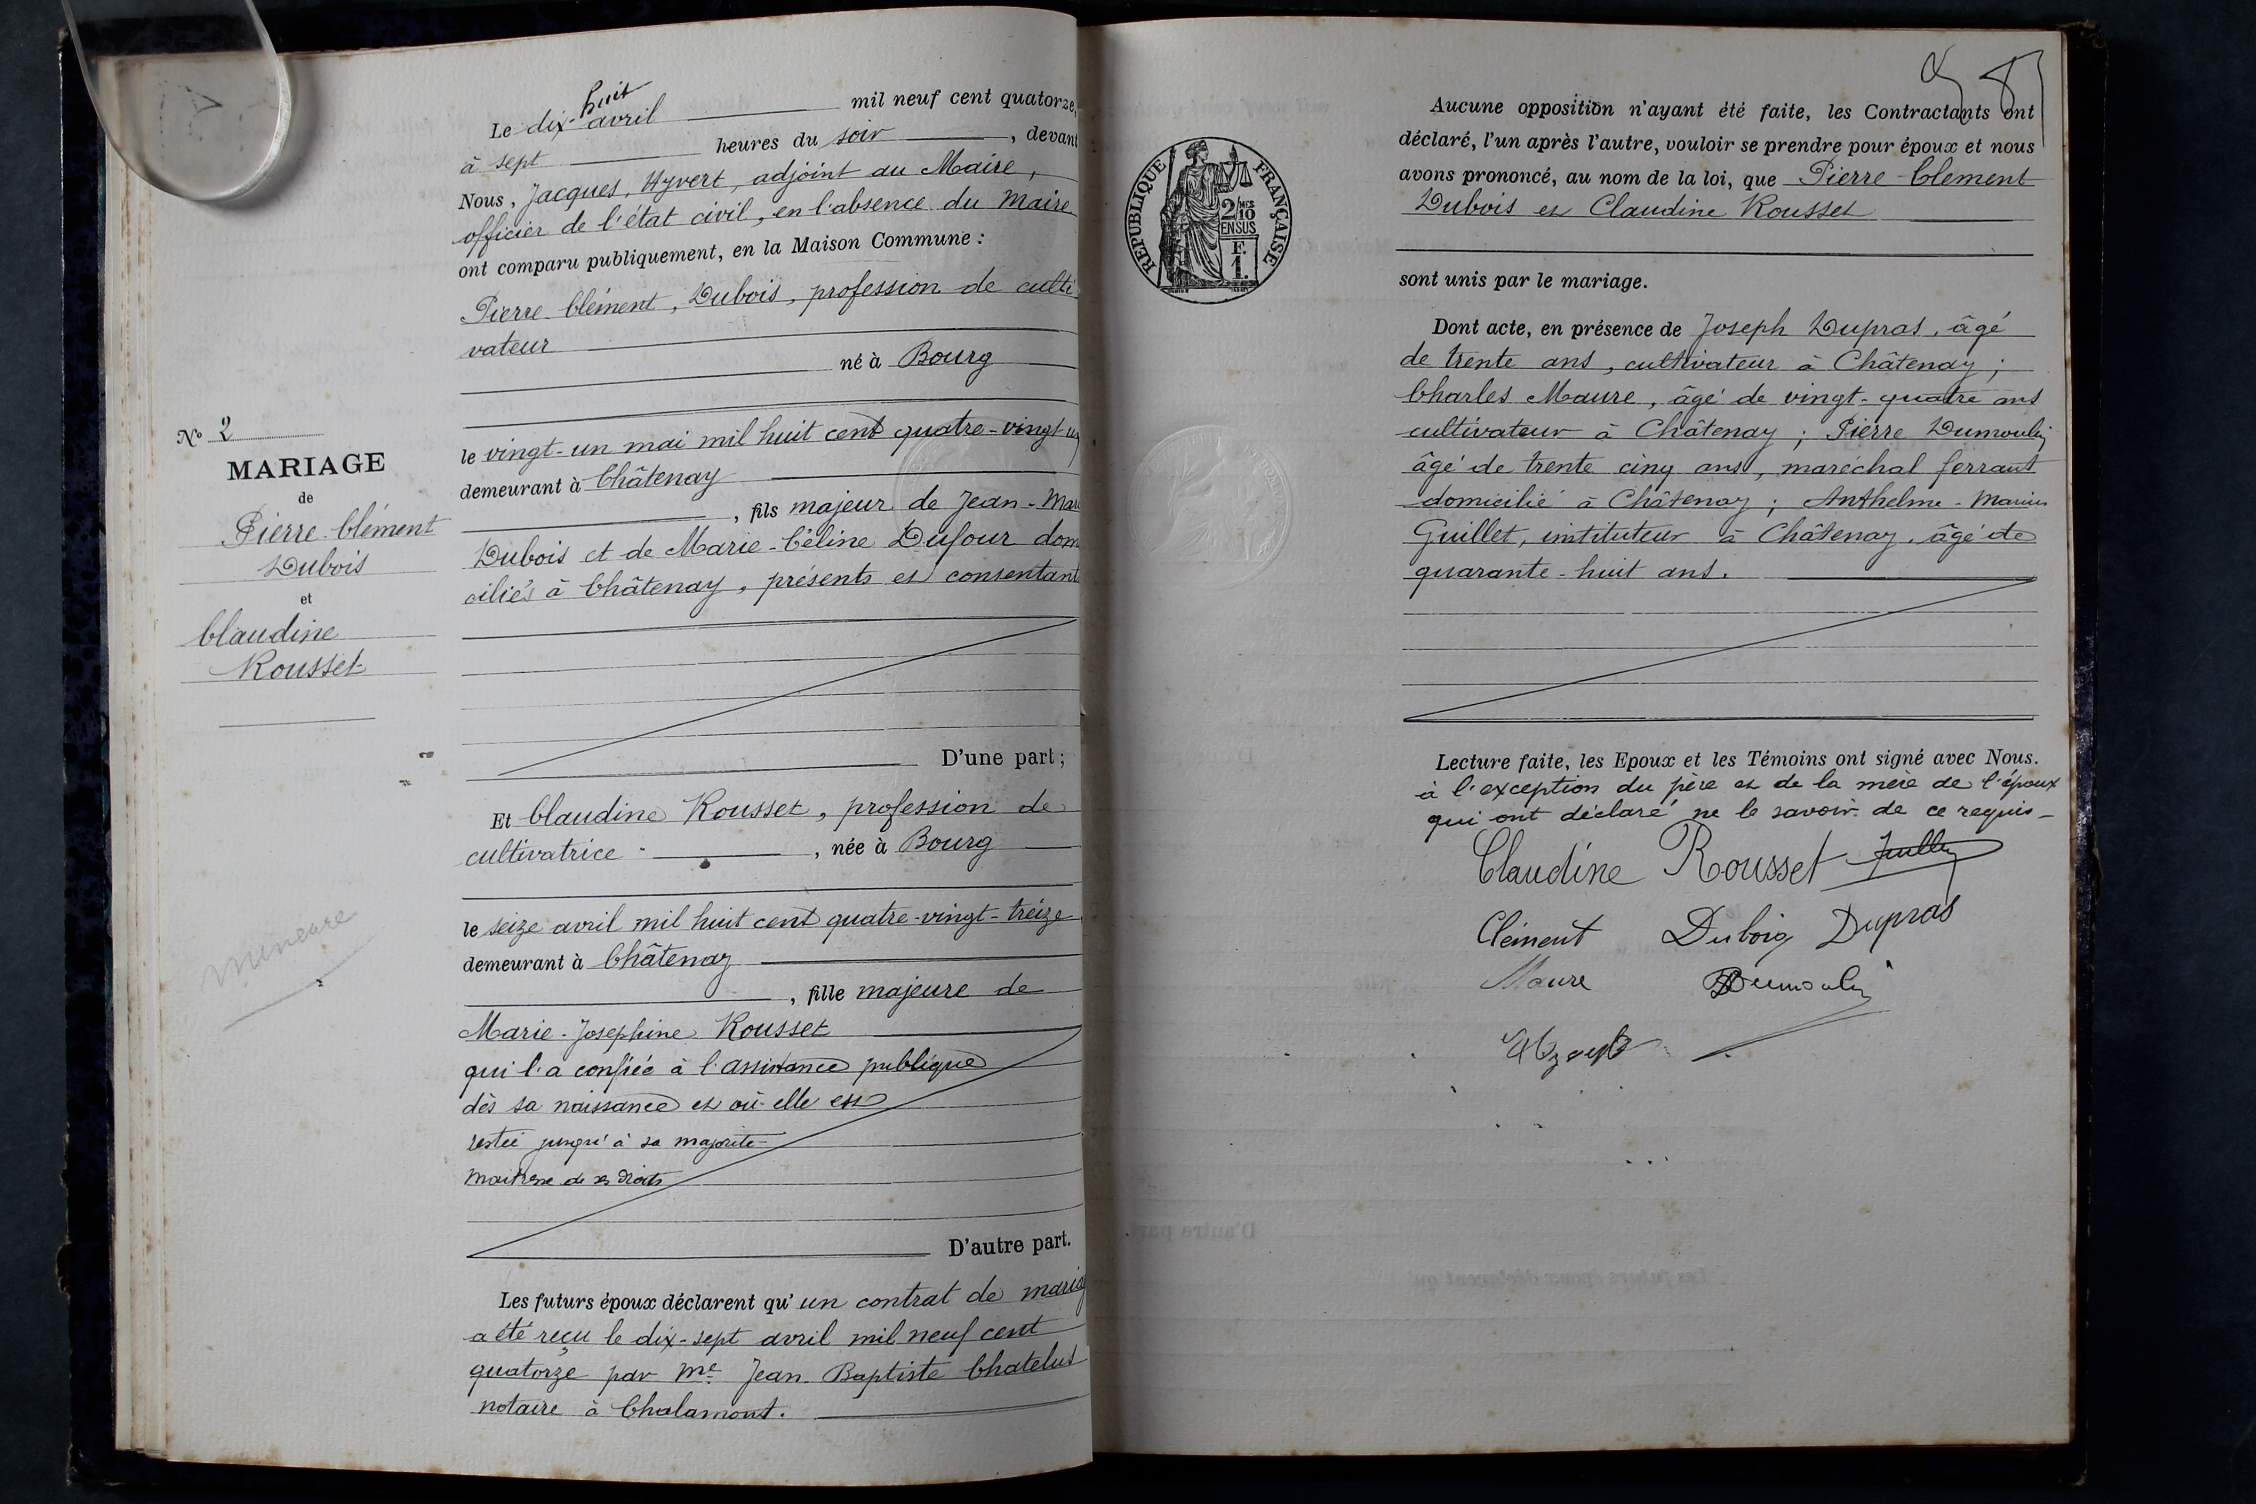 N° 2
MARIAGE
de
Pierre-Clément
Dubois
et
Claudine
Rousset
Le dix-huit avril mil neuf cent quatorze,
à sept heures du soir, devant
Nous, Jacques, Hyvert, adjoint au Maire,
officier de l'état civil, en l'absence du Maire
ont comparu publiquement, en la Maison Commune :
Pierre-Clément, Dubois, profession de culti
vateur
né à Bourg
le vingt-un mai mil huit cent quatre-vingt-un
demeurant à Châtenay
, fils majeur de Jean-Marie
Dubois et de Marie-Céline Dufour domi
ciliés à Châtenay, présents et consentants
D'une part ;
Et Claudine Rousset, profession de
cultivatrice, née à Bourg
le seize avril mil huit cent quatre-vingt-treize
demeurant à Châtenay
, fille majeure de
Marie-Josephine Rousset
qui l'a confiée à l'assistance publique
dès sa naissance et où elle est
restée jusqu'à sa majorité
maitresse de ses droits
D'autre part.
Les futurs époux déclarent qu'un contrat de mariage
a été reçu le dix-sept avril mil neuf cent
quatorze par Me Jean Baptiste Chatelus
notaire à Chalamont.
RÉPUBLIQUE FRANÇAISE
2/10 EN SUS
F.
1.
Aucune opposition n'ayant été faite, les Contractants ont
déclaré, l'un après l'autre, vouloir se prendre pour époux et nous
avons prononcé, au nom de la loi, que Pierre Clement
Dubois et Claudine Rousset
sont unis par le mariage.
Dont acte, en présence de Joseph Dupras, âgé
de trente ans, cultivateur à Châtenay ;
Charles Maure, âgé de vingt-quatre ans
cultivateur à Châtenay ; Pierre Dumoulin
âgé de trente cinq ans, maréchal ferrant
domicilié à Châtenay ; Anthelme-Marius
Guillet, instituteur à Châtenay, âgé de
quarante-huit ans.
Lecture faite, les Epoux et les Témoins ont signé avec Nous.
à l'exception du père et de la mère de l'époux
qui ont déclaré ne le savoir de ce requis
Claudine Rousset
Clément Dubois Dupras
Maure Dumoulin